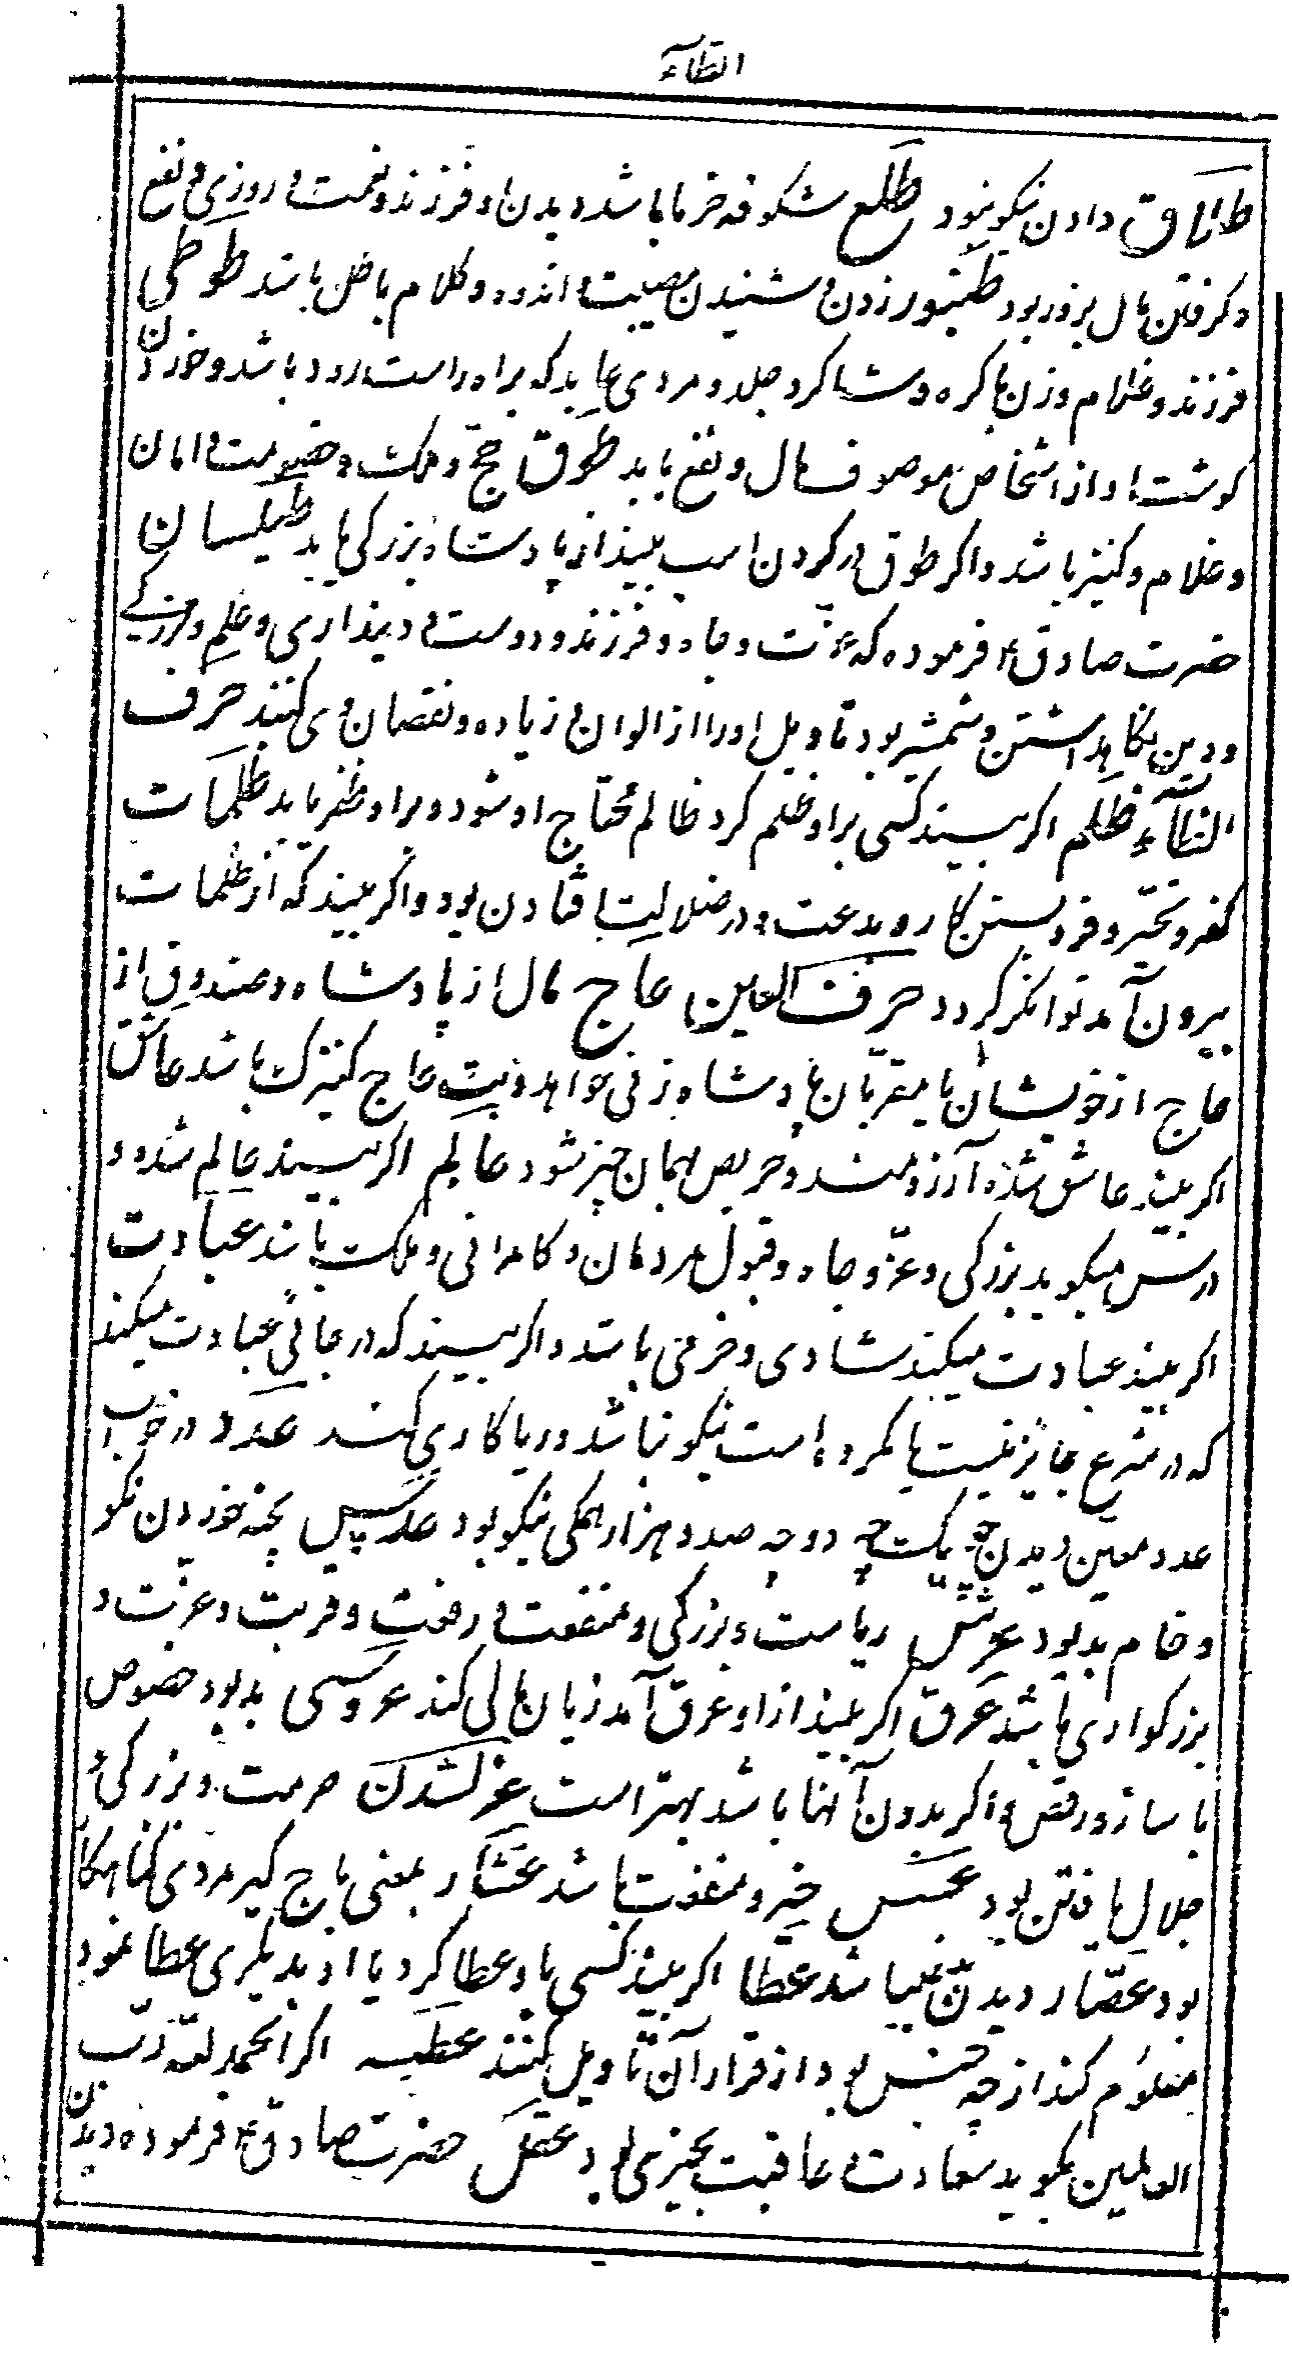 الظآء
طلاق دادن نیکو نبود طلع شکوفه خرما باشد دیدن او فرزند و نعمت و روزی و نفع
و گرفتن مال بزور بود طنبور زدن و شنیدن مصیبت و اندوه و کلام باطل باشد طوطی
فرزند و غلام و زن باکره و شاکرد جلد و مردی عابد که براه راست رود باشد و خوردن
کوشت او از اشخاص موصوف مال و نفع یابد طوق حج و ملک و خصومت و امان
و غلام و کنیز باشد و اکر طوق در کردن اسب بیند از پادشاه بزرکی یابد طیلسان
حضرت صادق ع فرموده که عزت و جاه و فرزند و دوست و دینداری و علم و بزرکی
و دین نکاهداشتن و شمشیر بود تاویل او را از الوان و زیاده و نقصان می کنند حرف
الظآء ظلم اکر بیند کسی بر او ظلم کرد ظالم محتاج او شود و بر او ظفر یابد ظلمات
کفر و تحیر و فرو بستن کار و بدعت و در ضلالت افتادن بود و اکر بیند که از ظلمات
بیرون آمد توانکر کردد حرف العین عاج مال از پادشاه و صندوق از
عاج از خویشان یا مقربان پادشاه زنی خواهد و بت عاج کنیزک باشد عاشق
اکر بیند عاشق شده آرزومند و حریص بهمان چیز شود عالم اکر بیند عالم شده و
درس میکوید بزرکی و عز و جاه و قبول مردمان و کامرانی و ملک باشد عبادت
اکر بیند عبادت میکند شادی و خرمی باشد و اکر بیند که در جائی عبادت میکند
که در شرع جایز نیست یا مکروه است نیکو نباشد و ریاکاری کند عدد در خواب
عدد معین دیدن چه یک چه دو چه صد و هزار همکی نیکو بود عدس پخته خوردن نیکو
و خام بد بود عرش ریاست و بزرکی و منفعت و رفعت و قربت و عزت و
بزرکواری باشد عرق اکر بیند از او عرق آمد زیان مالی کند عروسی بد بود خصوص
با ساز و رقص و اکر بدون آنها باشد بهتر است عزل شدن حرمت و بزرکی و
جلال یافتن بود عسس خیر و منفعت باشد عشار بمعنی باج کیر مردی کناهکار
بود عصار دیدن طبیب باشد عطا اکر بیند کسی باو عطا کرد یا او بدیکری عطا نمود
معلوم کند از چه جنس بود از قرار آن تاویل کنند عطسه اکر الحمد لله رب
العلمین بکوید سعادت و عاقبت بخیری بود عقل حضرت صادق ع فرموده دیدن